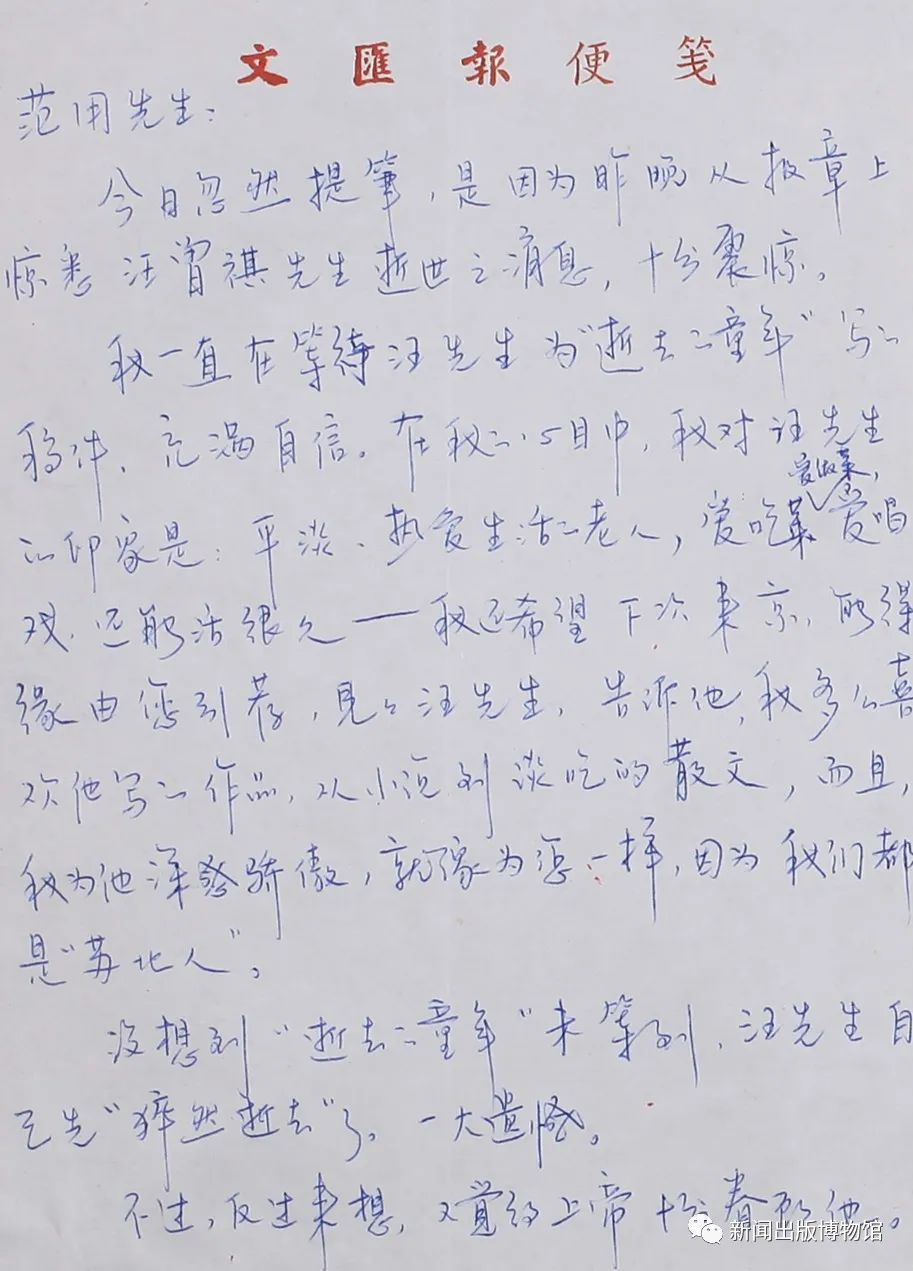 文匯報便箋
范用先生：
今日忽然提筆，是因为昨晚从报章上
惊悉汪曾祺先生逝世之消息，十分震惊。
我一直在等待汪先生为“逝去的童年”写的
稿件，充满自信。在我的心目中，我对汪先生
爱做菜，
的印象是：平淡、热爱生活的老人，爱吃菜爱唱
戏，还能活很久——我还希望下次来京，能得
缘由您引荐，见见汪先生，告诉他，我多么喜
欢他写的作品，从小说到谈吃的散文，而且，
我为他深感骄傲，就像为您一样，因为我们都
是“苏北人”。
没想到“逝去的童年”未等到，汪先生自
己先“猝然逝去”了。一大遗憾。
不过，反过来想，又觉得上帝十分眷顾他。
新闻出版博物馆